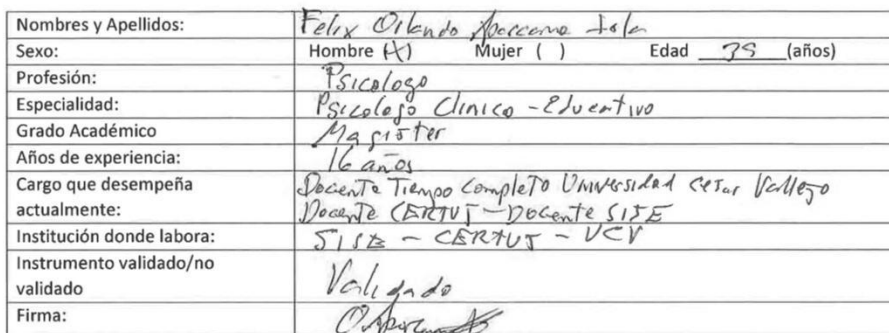 Nombres y Apellidos: Felix Orlando Aparcana Isla
Sexo: Hombre (X) Mujer ( ) Edad 39 (años)
Profesión: Psicologo
Especialidad: Psicologo Clinico - Educativo
Grado Académico Magister
Años de experiencia: 16 años
Cargo que desempeña Docente Tiempo Completo Universidad Cesar Vallejo
actualmente: Docente CERTUS - Docente SISE
Institución donde labora: SISE - CERTUS - UCV
Instrumento validado/no
validado Validado
Firma: